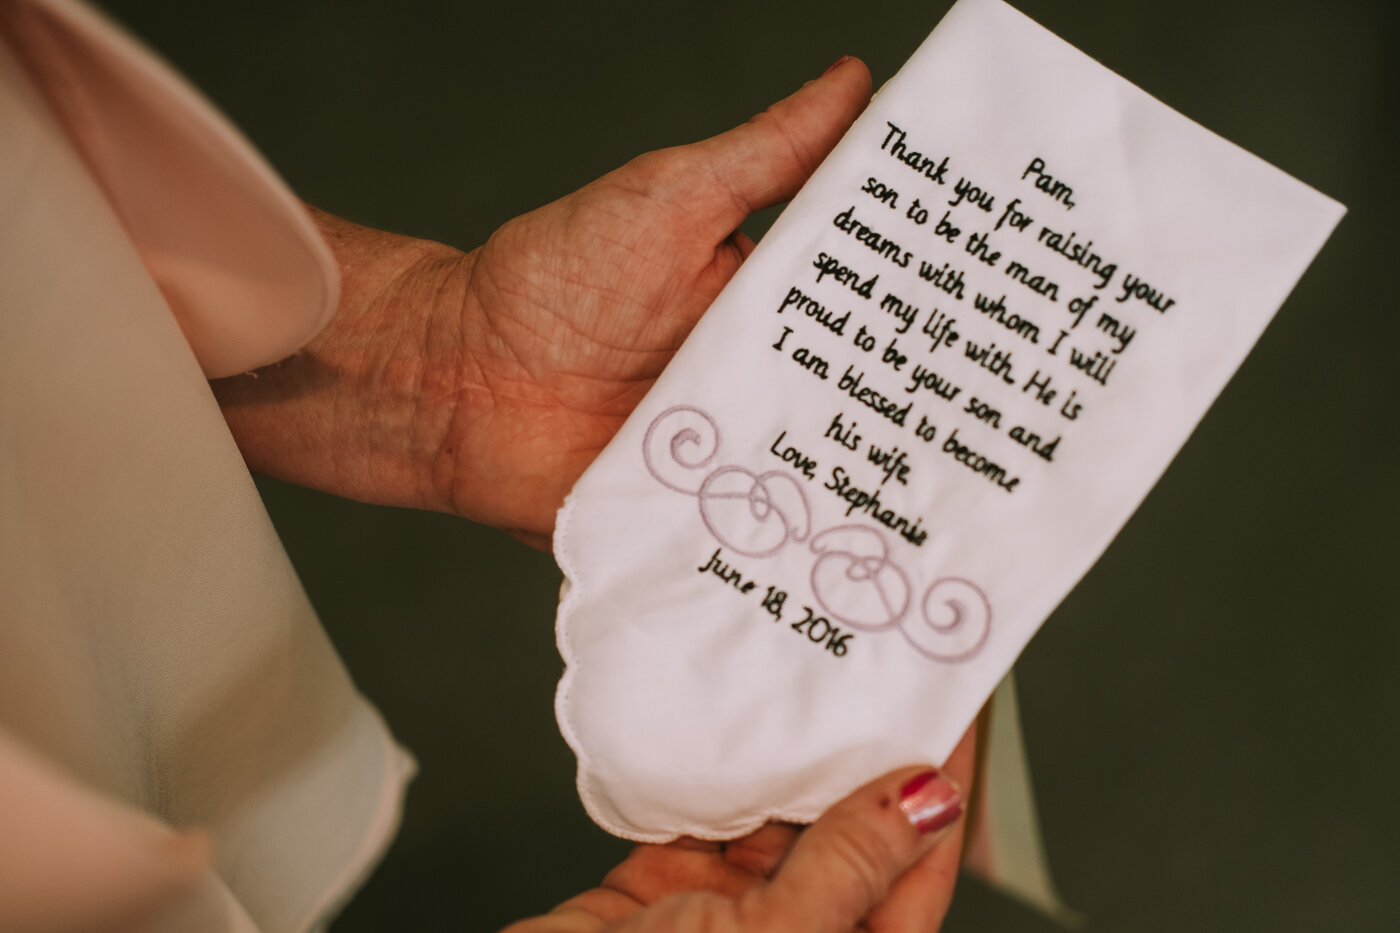 Pam,
Thank you for raising your
son to be the man of my
dreams with whom I will
spend my life with. He is
proud to be your son and
I am blessed to become
his wife.
Love, Stephanie
June 18, 2016